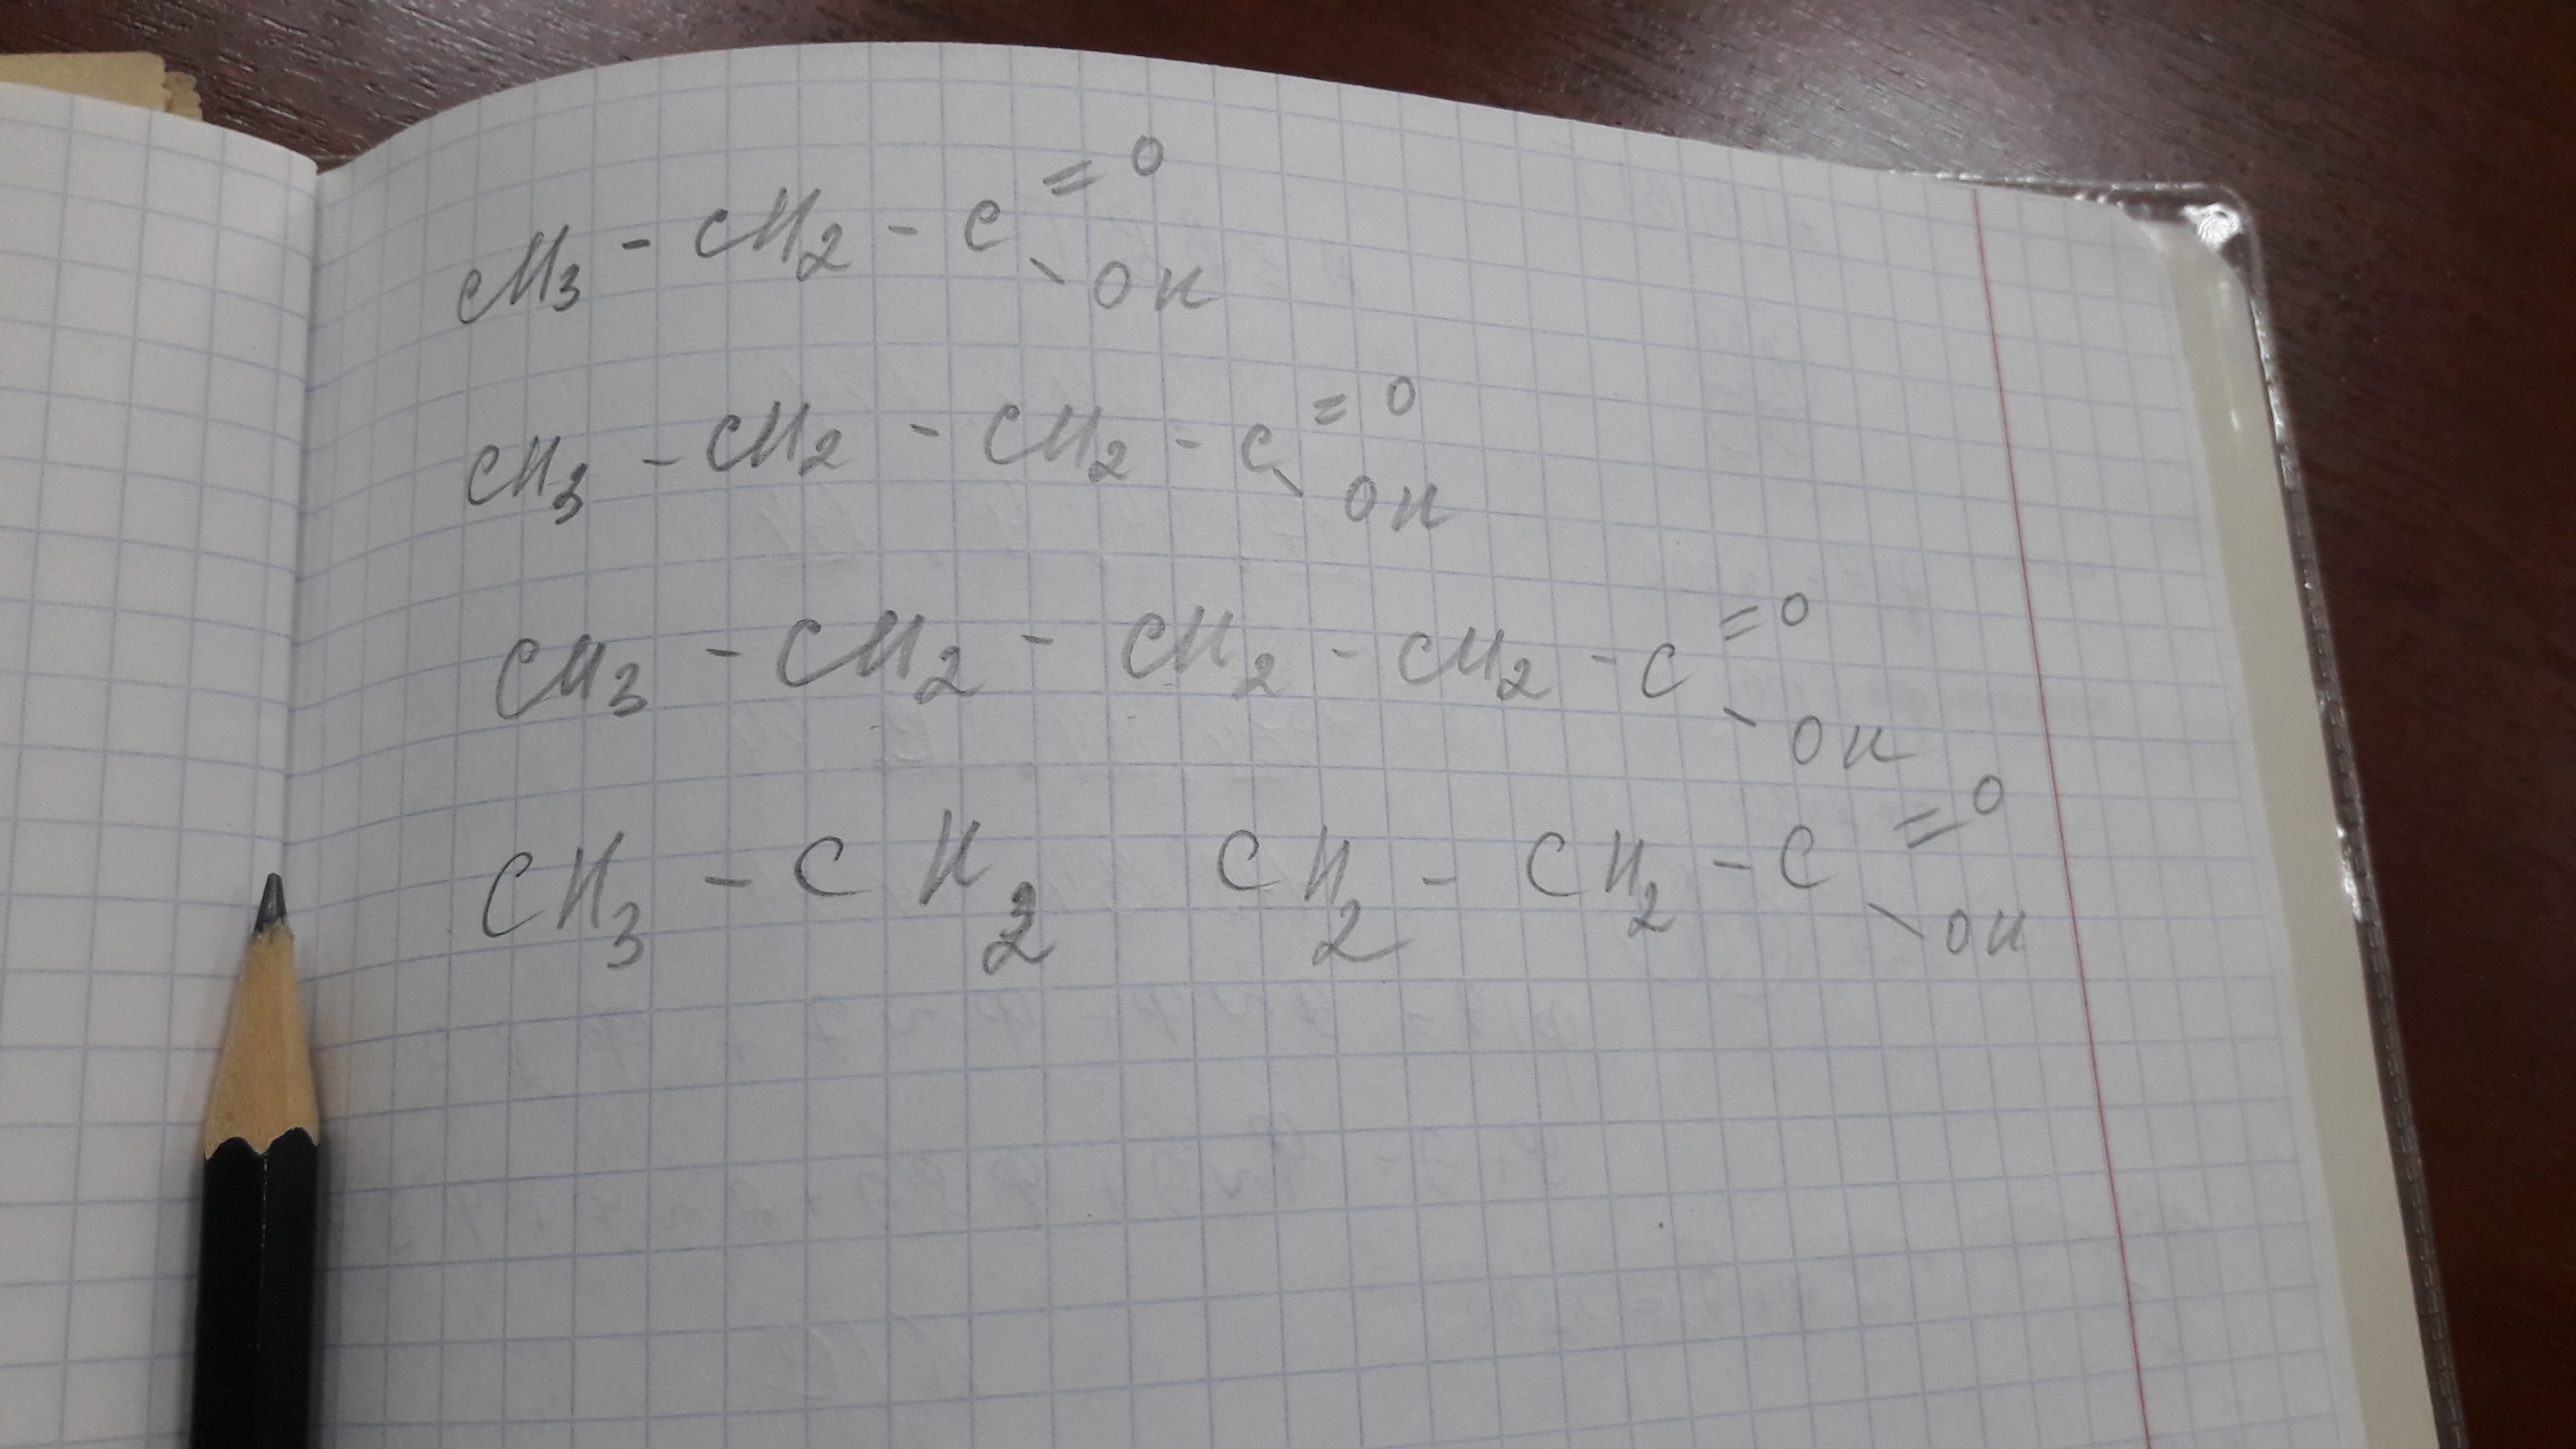 CH3 - CH2 - C = O - OH
CH3 - CH2 - CH2 - C = O - OH
CH3 - CH2 - CH2 - CH2 - C = O - OH
CH3 - CH2 CH2 - CH2 - C = O - OH